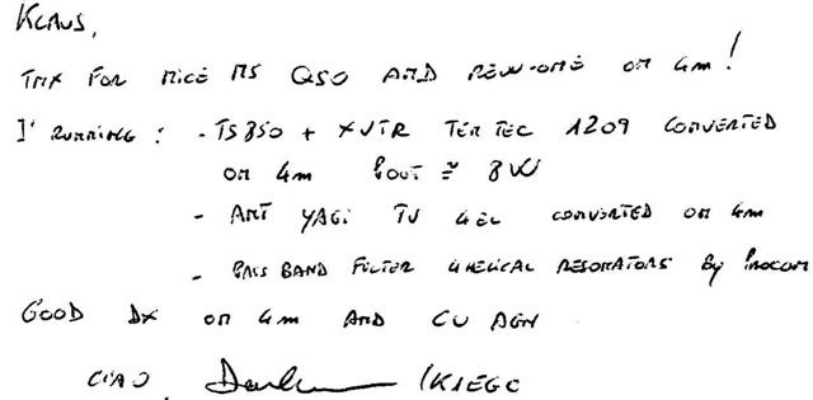 Klaus,
TNX FOR NICE MS QSO AND NEW-ONE ON 4m!
I' RUNNING: - TS850 + XVTR TEN TEC 1209 CONVERTED
ON 4m Pout ≅ 8W
- ANT YAGI TV 4EL CONVERTED ON 4m
- PASS BAND FILTER 4 HELICAL RESONATORS By PROCOM
GOOD DX ON 4m AND CU AGN
CIAO,